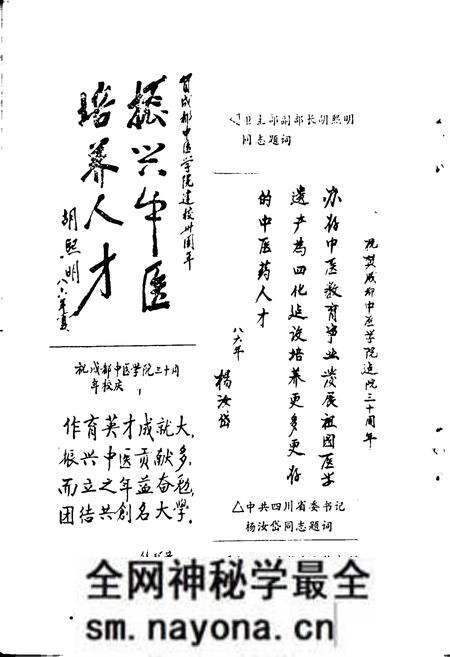 贺成都中医学院建校卅周年
振兴中医
培养人才
胡熙明
八六年夏
卫生部副部长胡熙明
同志题词
祝贺成都中医学院建院三十周年
办好中医教育事业发展祖国医学
遗产为四化建设培养更多更好
的中医药人才
八六年
杨汝岱
△中共四川省委书记
杨汝岱同志题词
祝成都中医学院三十周
年校庆
作育英才成就大，
振兴中医贡献多，
而立之年益奋勉，
团结共创名大学。
全网神秘学最全
sm.nayona.cn